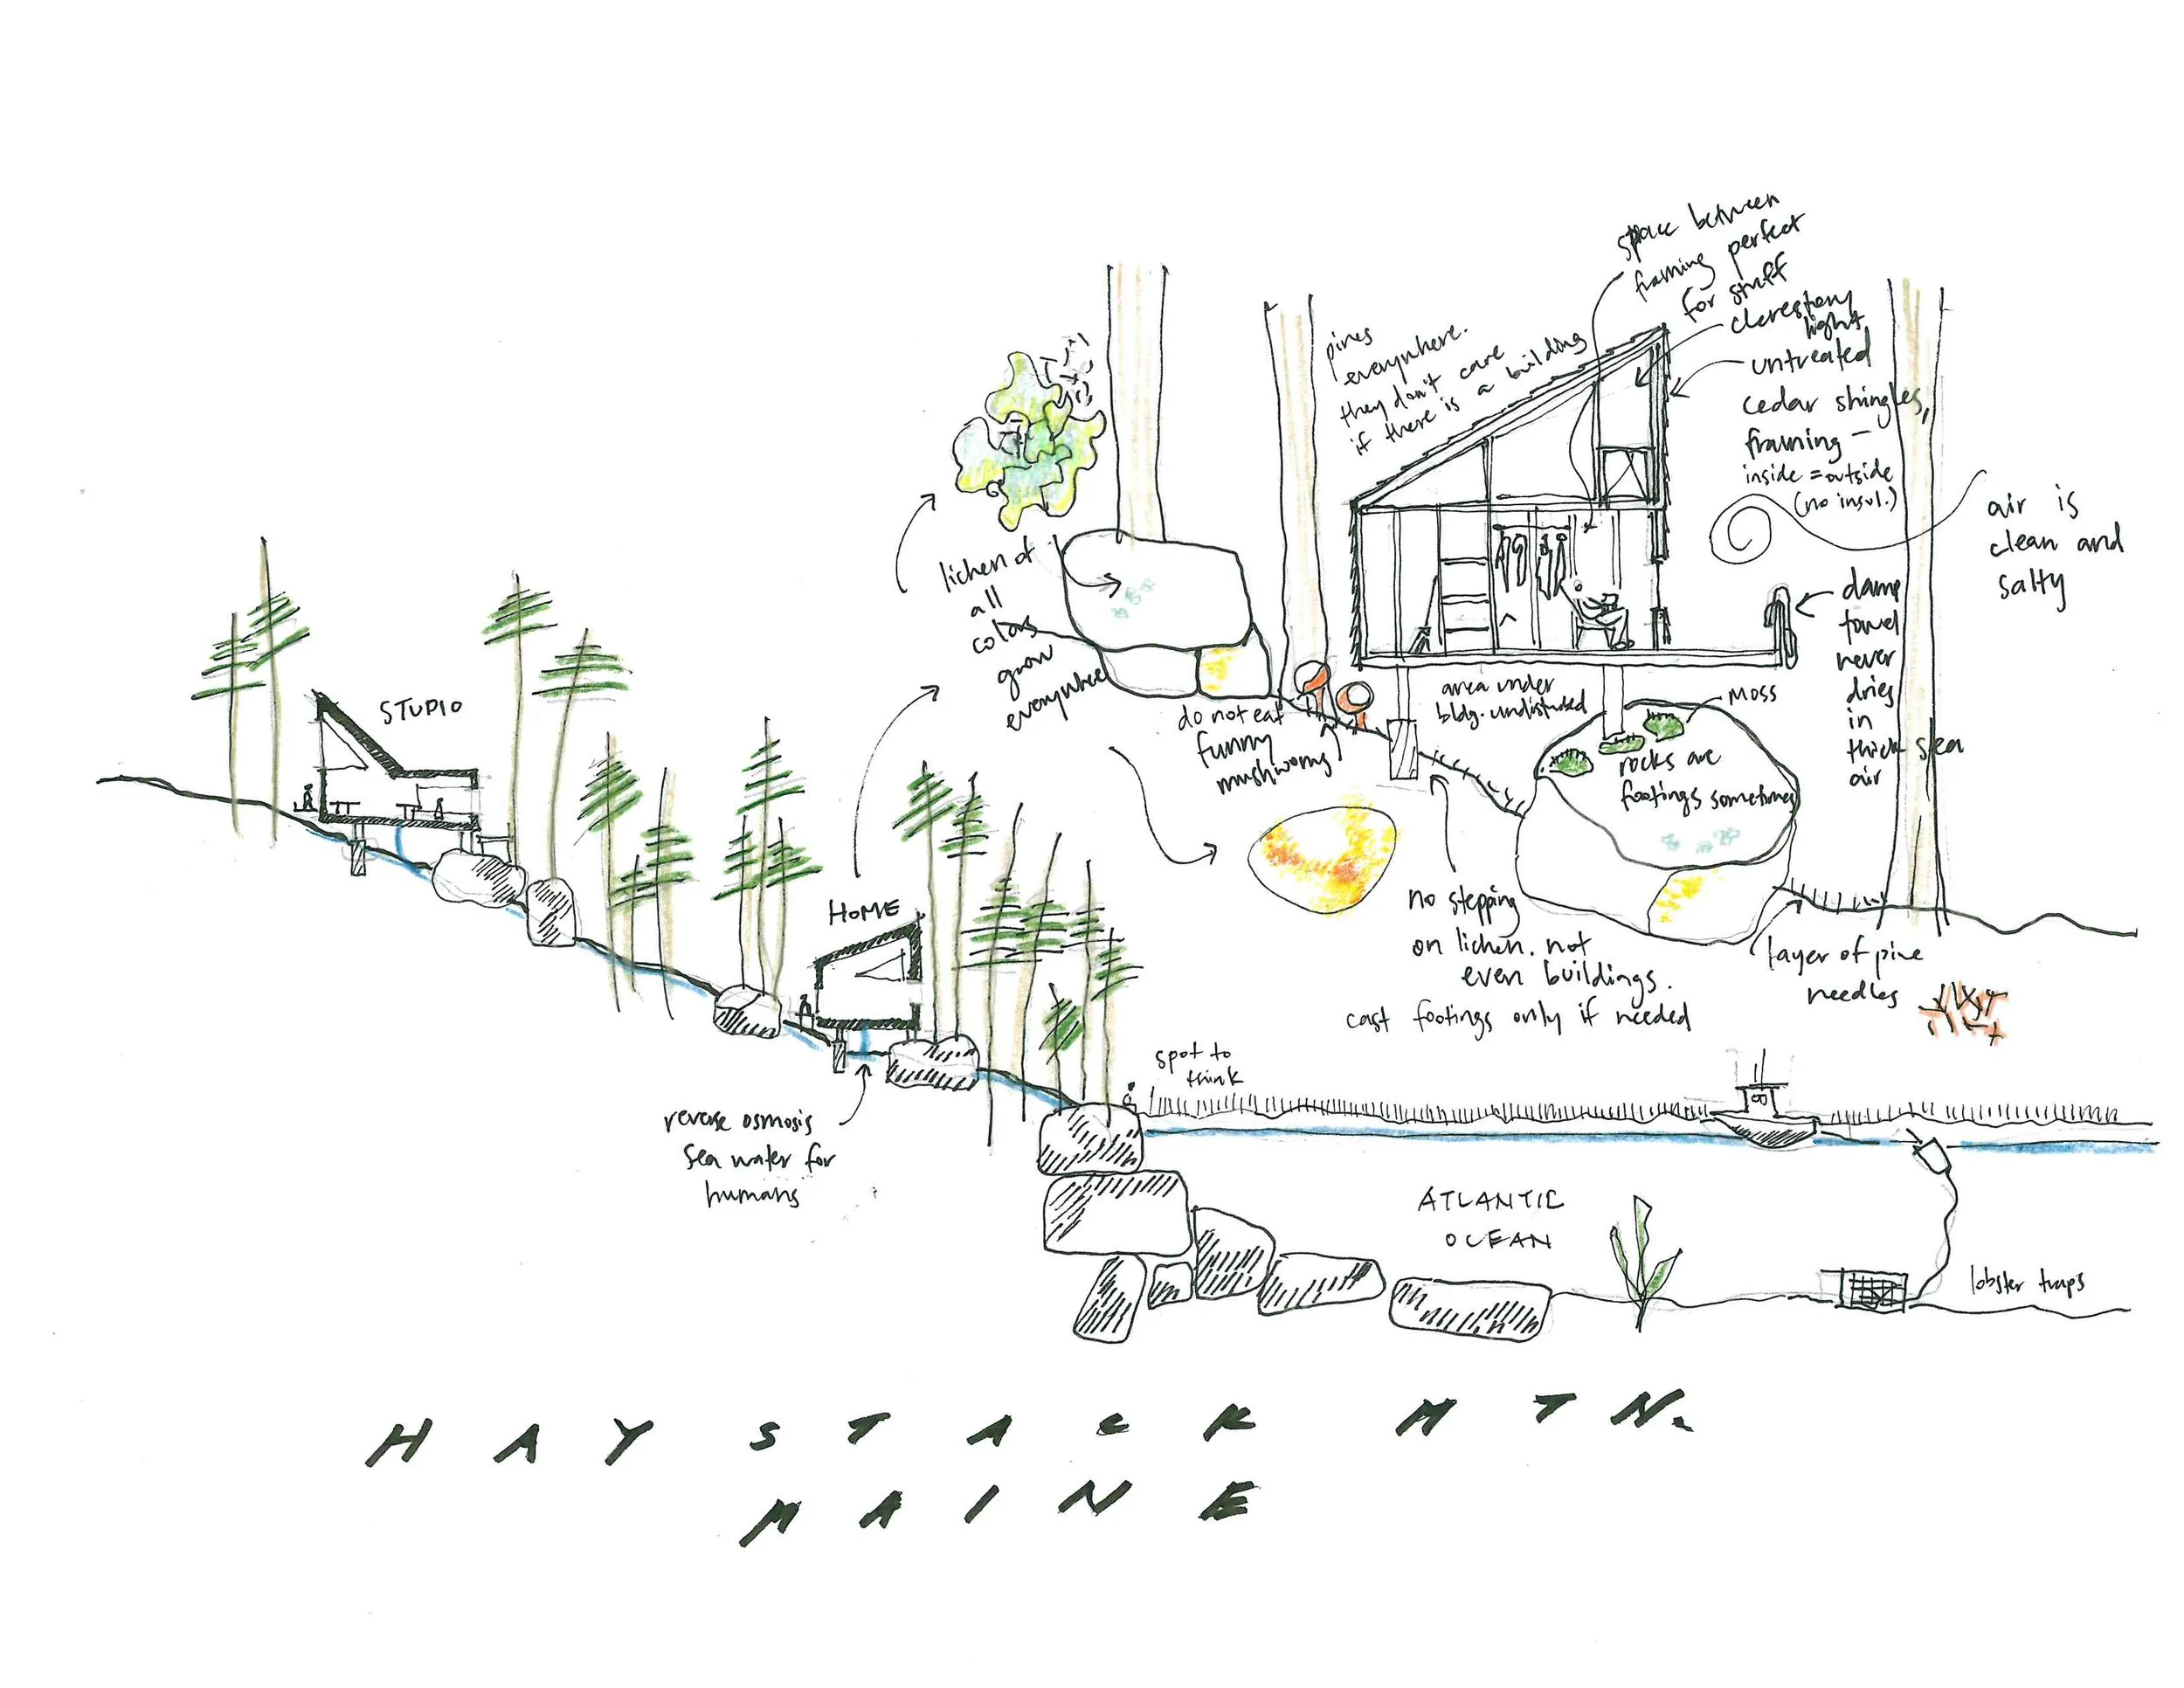 space between
framing perfect
for stuff
clerestory
light
untreated
cedar shingles,
framing -
inside = outside
(no insul.)
pines
everywhere.
they don't care
if there is a building
air is
clean and
salty
damp
towel
never
dries
in
thick sea
air
lichen of
all
colors
grow
everywhere
do not eat
funny
mushrooms
area under
bldg. undisturbed
MOSS
rocks are
footings sometimes
STUDIO
HOME
no stepping
on lichen. not
even buildings.
cast footings only if needed
layer of pine
needles
spot to
think
reverse osmosis
sea water for
humans
ATLANTIC
OCEAN
lobster traps
HAYSTACK MTN.
MAINE